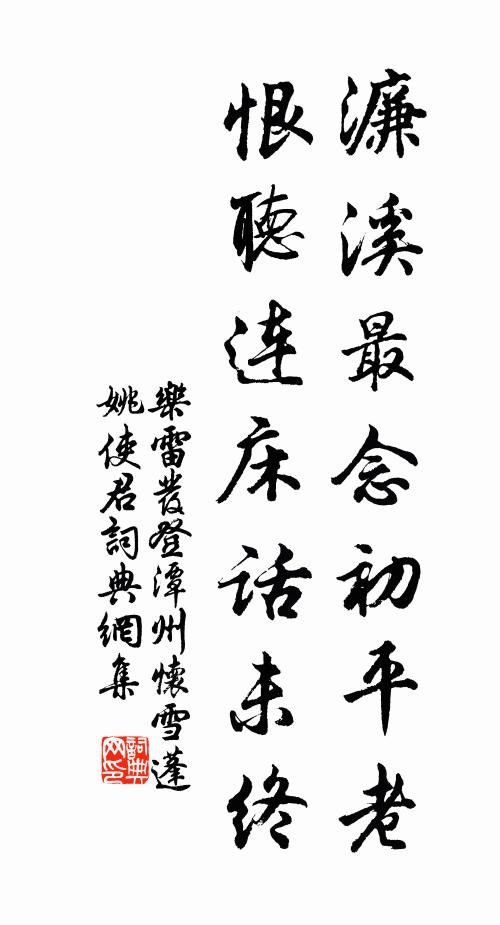 濂溪最念初平老
恨聽连床话未终
樂雷發登潭州懷雪蓬
姚使君詞典網集
詞典网印